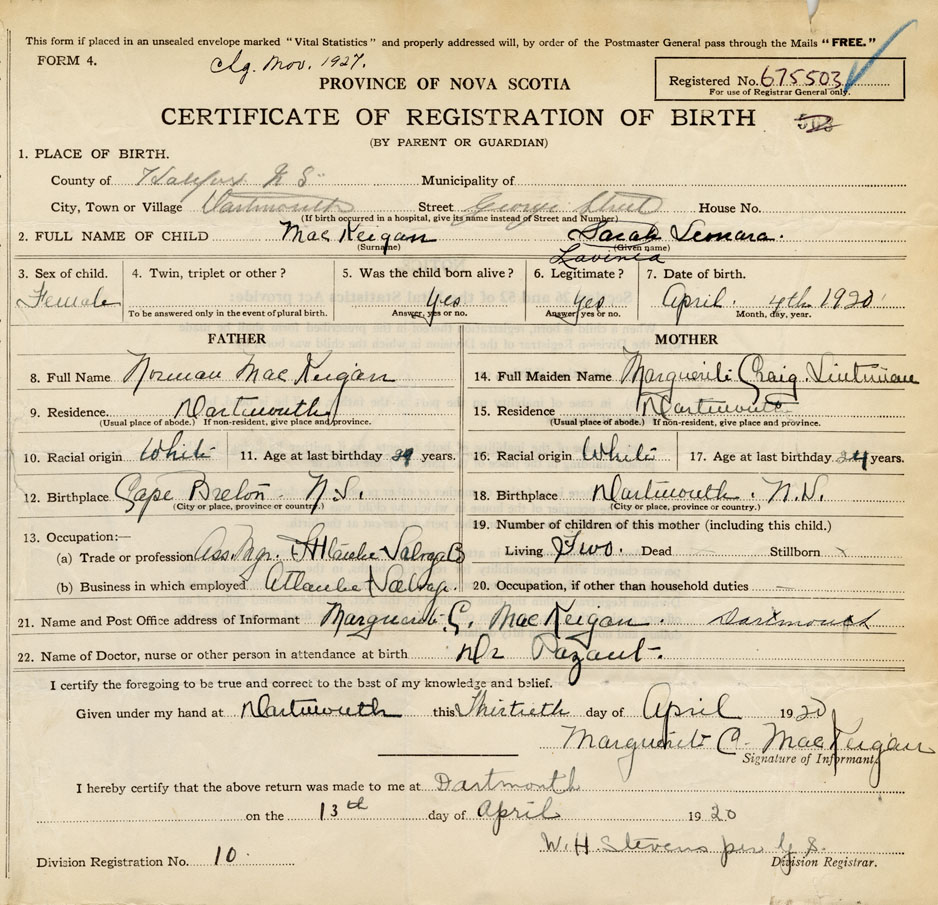 This form if placed in an unsealed envelope marked "Vital Statistics" and properly addressed will, by order of the Postmaster General pass through the Mails "FREE."
FORM 4. Nov. 1927.
PROVINCE OF NOVA SCOTIA
Registered No. 675503
For use of Registrar General only.
CERTIFICATE OF REGISTRATION OF BIRTH
(BY PARENT OR GUARDIAN)
1. PLACE OF BIRTH.
County of Halifax N S Municipality of
City, Town or Village Dartmouth Street George Street House No.
(If birth occurred in a hospital, give its name instead of Street and Number)
2. FULL NAME OF CHILD Mac Keigan Sarah Leonara.
(Surname) (Given name)
Lavinia
3. Sex of child. 4. Twin, triplet or other? 5. Was the child born alive? 6. Legitimate? 7. Date of birth.
Female Yes. Yes April 4th 1920
To be answered only in the event of plural birth. Answer, yes or no. Answer, yes or no. Month, day, year.
FATHER MOTHER
8. Full Name Norman Mac Keigan 14. Full Maiden Name Marguerite Craig
9. Residence. Dartmouth 15. Residence Dartmouth
(Usual place of abode.) If non-resident, give place and province. (Usual place of abode.) If non-resident, give place and province.
10. Racial origin White 11. Age at last birthday 29 years. 16. Racial origin White 17. Age at last birthday 24 years.
12. Birthplace Cape Breton - N.S. 18. Birthplace Dartmouth. N.S.
(City or place, province or country.) (City or place, province or country.)
13. Occupation:— 19. Number of children of this mother (including this child.)
(a) Trade or profession Ass. Mgr. Atlantic Salvage Living Two. Dead — Stillborn
(b) Business in which employed Atlantic Salvage. 20. Occupation, if other than household duties —
21. Name and Post Office address of Informant Marguerite C. Mac Keigan. Dartmouth
22. Name of Doctor, nurse or other person in attendance at birth Dr Payzant.
I certify the foregoing to be true and correct to the best of my knowledge and belief.
Given under my hand at Dartmouth this Thirtieth day of April 1920
Marguerite C. Mac Keigan
Signature of Informant.
I hereby certify that the above return was made to me at Dartmouth
on the 13th day of April 1920
W. H. Stevens per G. S.
Division Registration No. 10. Division Registrar.